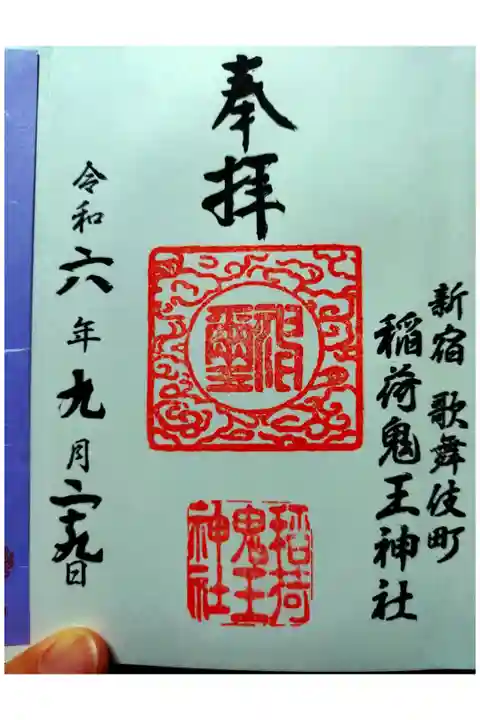 奉拝
新宿 歌舞伎町
稲荷鬼王神社
神璽
稲荷
鬼王
神社
令和六年九月二十九日